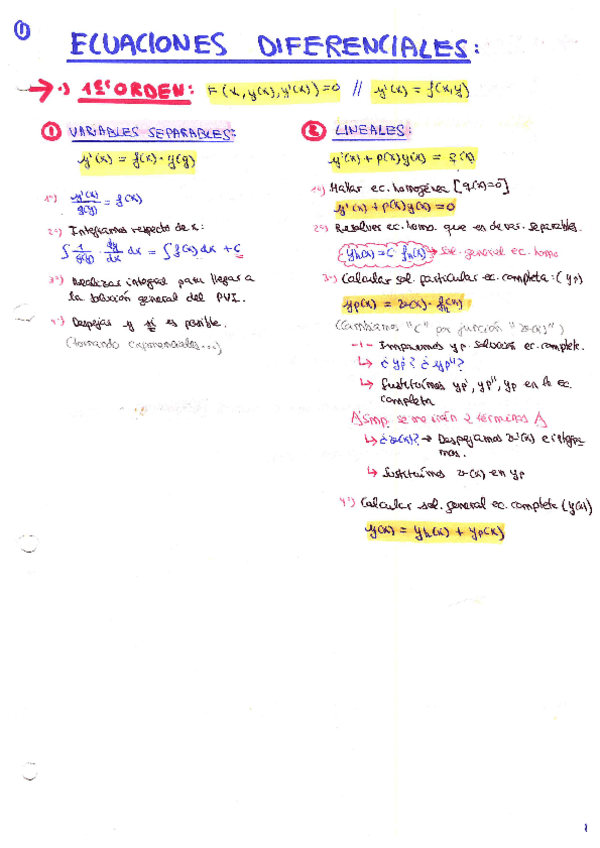 1
ECUACIONES DIFERENCIALES:
→ ·) 1er ORDEN: F(x, y(x), y'(x)) = 0 // y'(x) = f(x,y)
1 VARIABLES SEPARABLES:
y'(x) = f(x) · g(y)
1º) y'(x)/g(y) = f(x)
2º) Integramos respecto de x:
∫ 1/g(y) · dy/dx dx = ∫ f(x) dx + C
3º) Realizar integral para llegar a
la solución general del PVI.
4º) Despejas y si es posible.
(tomando exponenciales...)
2 LINEALES:
y'(x) + p(x)y(x) = q(x)
1º) Hallar ec. homogénea [q(x)=0]
y'(x) + p(x)y(x) = 0
2º) Resolver ec. homo. que es de var. separables.
yh(x) = C · fh(x) → sol. general ec. homo
3º) Calcular sol. particular ec. completa: (yp)
yp(x) = v(x) · fh(x)
(Cambiamos "C" por función "v(x)")
-1- Imponemos yp solución ec. complet.
↳ ¿yp'? ¿yp''?
↳ Sustituimos yp', yp'', yp en la ec.
completa
Simp. se me irán 2 términos
↳ ¿v(x)? → Despejamos v'(x) e integra-
mos.
↳ Sustituimos v(x) en yp
4º) Calcular sol. general ec. completa (y(x))
y(x) = yh(x) + yp(x)
1